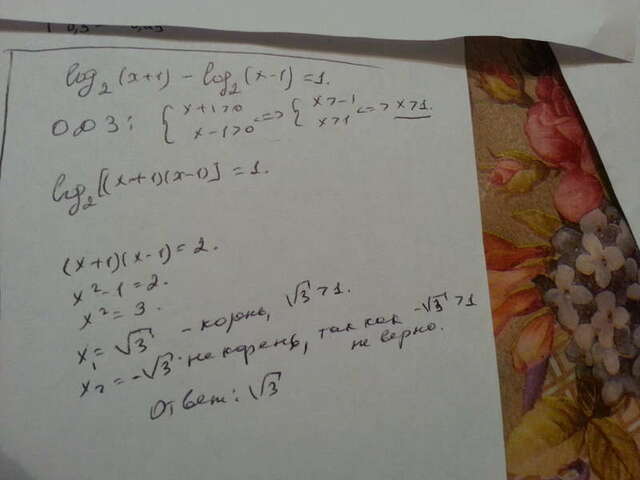 log₂(x+1) - log₂(x-1) = 1.
ООЗ: { x+1>0 x-1>0 <=> { x>-1 x>1 <=> x>1.
log₂[(x+1)(x-1)] = 1.
(x+1)(x-1) = 2.
x²-1 = 2.
x² = 3.
x₁ = √3 - корень, √3 > 1.
x₂ = -√3 - не корень, так как -√3 > 1
не верно.
Ответ: √3